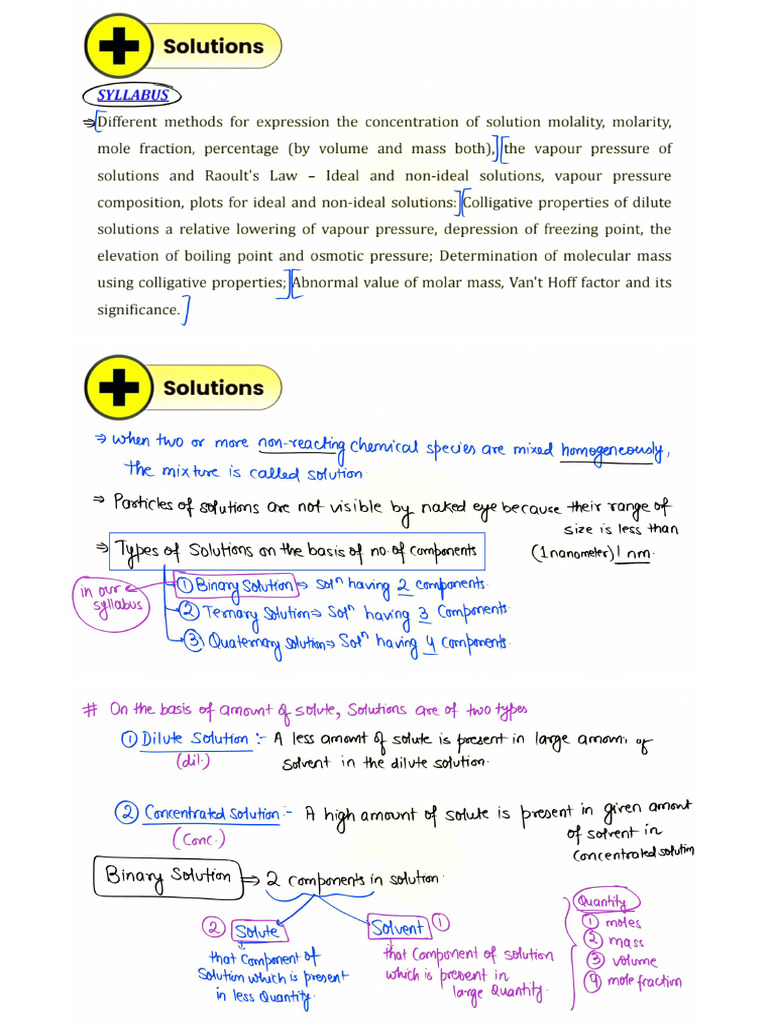 Solutions
SYLLABUS
⇒[Different methods for expression the concentration of solution molality, molarity,
mole fraction, percentage (by volume and mass both),][the vapour pressure of
solutions and Raoult's Law – Ideal and non-ideal solutions, vapour pressure
composition, plots for ideal and non-ideal solutions:][Colligative properties of dilute
solutions a relative lowering of vapour pressure, depression of freezing point, the
elevation of boiling point and osmotic pressure; Determination of molecular mass
using colligative properties;][Abnormal value of molar mass, Van't Hoff factor and its
significance.]
Solutions
⇒ When two or more non-reacting chemical species are mixed homogeneously,
the mixture is called solution.
⇒ Particles of solutions are not visible by naked eye because their range of
size is less than
(1 nanometer) 1 nm.
⇒ Types of Solutions on the basis of no. of components
in our syllabus
① Binary Solution ⇒ Solⁿ having 2 components.
② Ternary Solution ⇒ Solⁿ having 3 Components.
③ Quaternary Solution ⇒ Solⁿ having 4 Components.
# On the basis of amount of solute, Solutions are of two types
① Dilute Solution :- A less amount of solute is present in large amount of
(dil.)
solvent in the dilute solution.
② Concentrated solution :- A high amount of solute is present in given amont
(Conc.)
of solvent in
concentrated solution
Binary Solution ⇒ 2 components in solution.
② Solute
that component of
solution which is present
in less Quantity.
Solvent ①
that component of solution
which is present in
large Quantity.
Quantity
① moles
② mass
③ volume
④ mole fraction